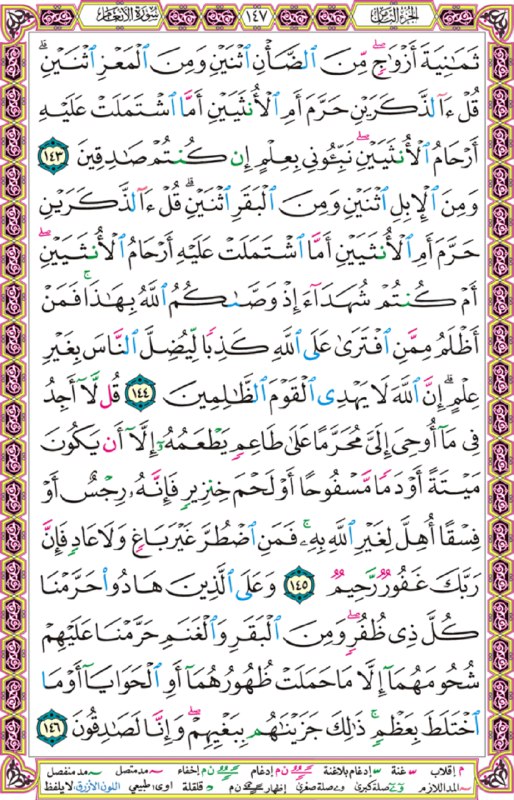 الجزء الثامن
١٤٧
سورة الأنعام
ثَمَٰنِيَةَ أَزْوَٰجٍۖ مِّنَ ٱلضَّأْنِ ٱثْنَيْنِ وَمِنَ ٱلْمَعْزِ ٱثْنَيْنِۗ
قُلْ ءَآلذَّكَرَيْنِ حَرَّمَ أَمِ ٱلْأُنثَيَيْنِ أَمَّا ٱشْتَمَلَتْ عَلَيْهِ
أَرْحَامُ ٱلْأُنثَيَيْنِۖ نَبِّـُٔونِى بِعِلْمٍ إِن كُنتُمْ صَٰدِقِينَ ١٤٣
وَمِنَ ٱلْإِبِلِ ٱثْنَيْنِ وَمِنَ ٱلْبَقَرِ ٱثْنَيْنِۗ قُلْ ءَآلذَّكَرَيْنِ
حَرَّمَ أَمِ ٱلْأُنثَيَيْنِ أَمَّا ٱشْتَمَلَتْ عَلَيْهِ أَرْحَامُ ٱلْأُنثَيَيْنِۖ
أَمْ كُنتُمْ شُهَدَآءَ إِذْ وَصَّىٰكُمُ ٱللَّهُ بِهَٰذَاۚ فَمَنْ
أَظْلَمُ مِمَّنِ ٱفْتَرَىٰ عَلَى ٱللَّهِ كَذِبًا لِّيُضِلَّ ٱلنَّاسَ بِغَيْرِ
عِلْمٍۗ إِنَّ ٱللَّهَ لَا يَهْدِى ٱلْقَوْمَ ٱلظَّٰلِمِينَ ١٤٤ قُل لَّآ أَجِدُ
فِى مَآ أُوحِىَ إِلَىَّ مُحَرَّمًا عَلَىٰ طَاعِمٍ يَطْعَمُهُۥٓ إِلَّآ أَن يَكُونَ
مَيْتَةً أَوْ دَمًا مَّسْفُوحًا أَوْ لَحْمَ خِنزِيرٍ فَإِنَّهُۥ رِجْسٌ أَوْ
فِسْقًا أُهِلَّ لِغَيْرِ ٱللَّهِ بِهِۦۚ فَمَنِ ٱضْطُرَّ غَيْرَ بَاغٍ وَلَا عَادٍ فَإِنَّ
رَبَّكَ غَفُورٌ رَّحِيمٌ ١٤٥ وَعَلَى ٱلَّذِينَ هَادُوا۟ حَرَّمْنَا
كُلَّ ذِى ظُفُرٍۖ وَمِنَ ٱلْبَقَرِ وَٱلْغَنَمِ حَرَّمْنَا عَلَيْهِمْ
شُحُومَهُمَآ إِلَّا مَا حَمَلَتْ ظُهُورُهُمَآ أَوِ ٱلْحَوَايَآ أَوْ مَا
ٱخْتَلَطَ بِعَظْمٍۚ ذَٰلِكَ جَزَيْنَٰهُم بِبَغْيِهِمْۖ وَإِنَّا لَصَٰدِقُونَ ١٤٦
م إقلاب غنة إدغام بلاغنة ن م إدغام ن م إخفاء مد متصل مد منفصل
المد اللازم صلة كبرى صلة صغرى إظهار ن م قلقلة اوى: طبيعي اللون الأزرق: لا يلفظ